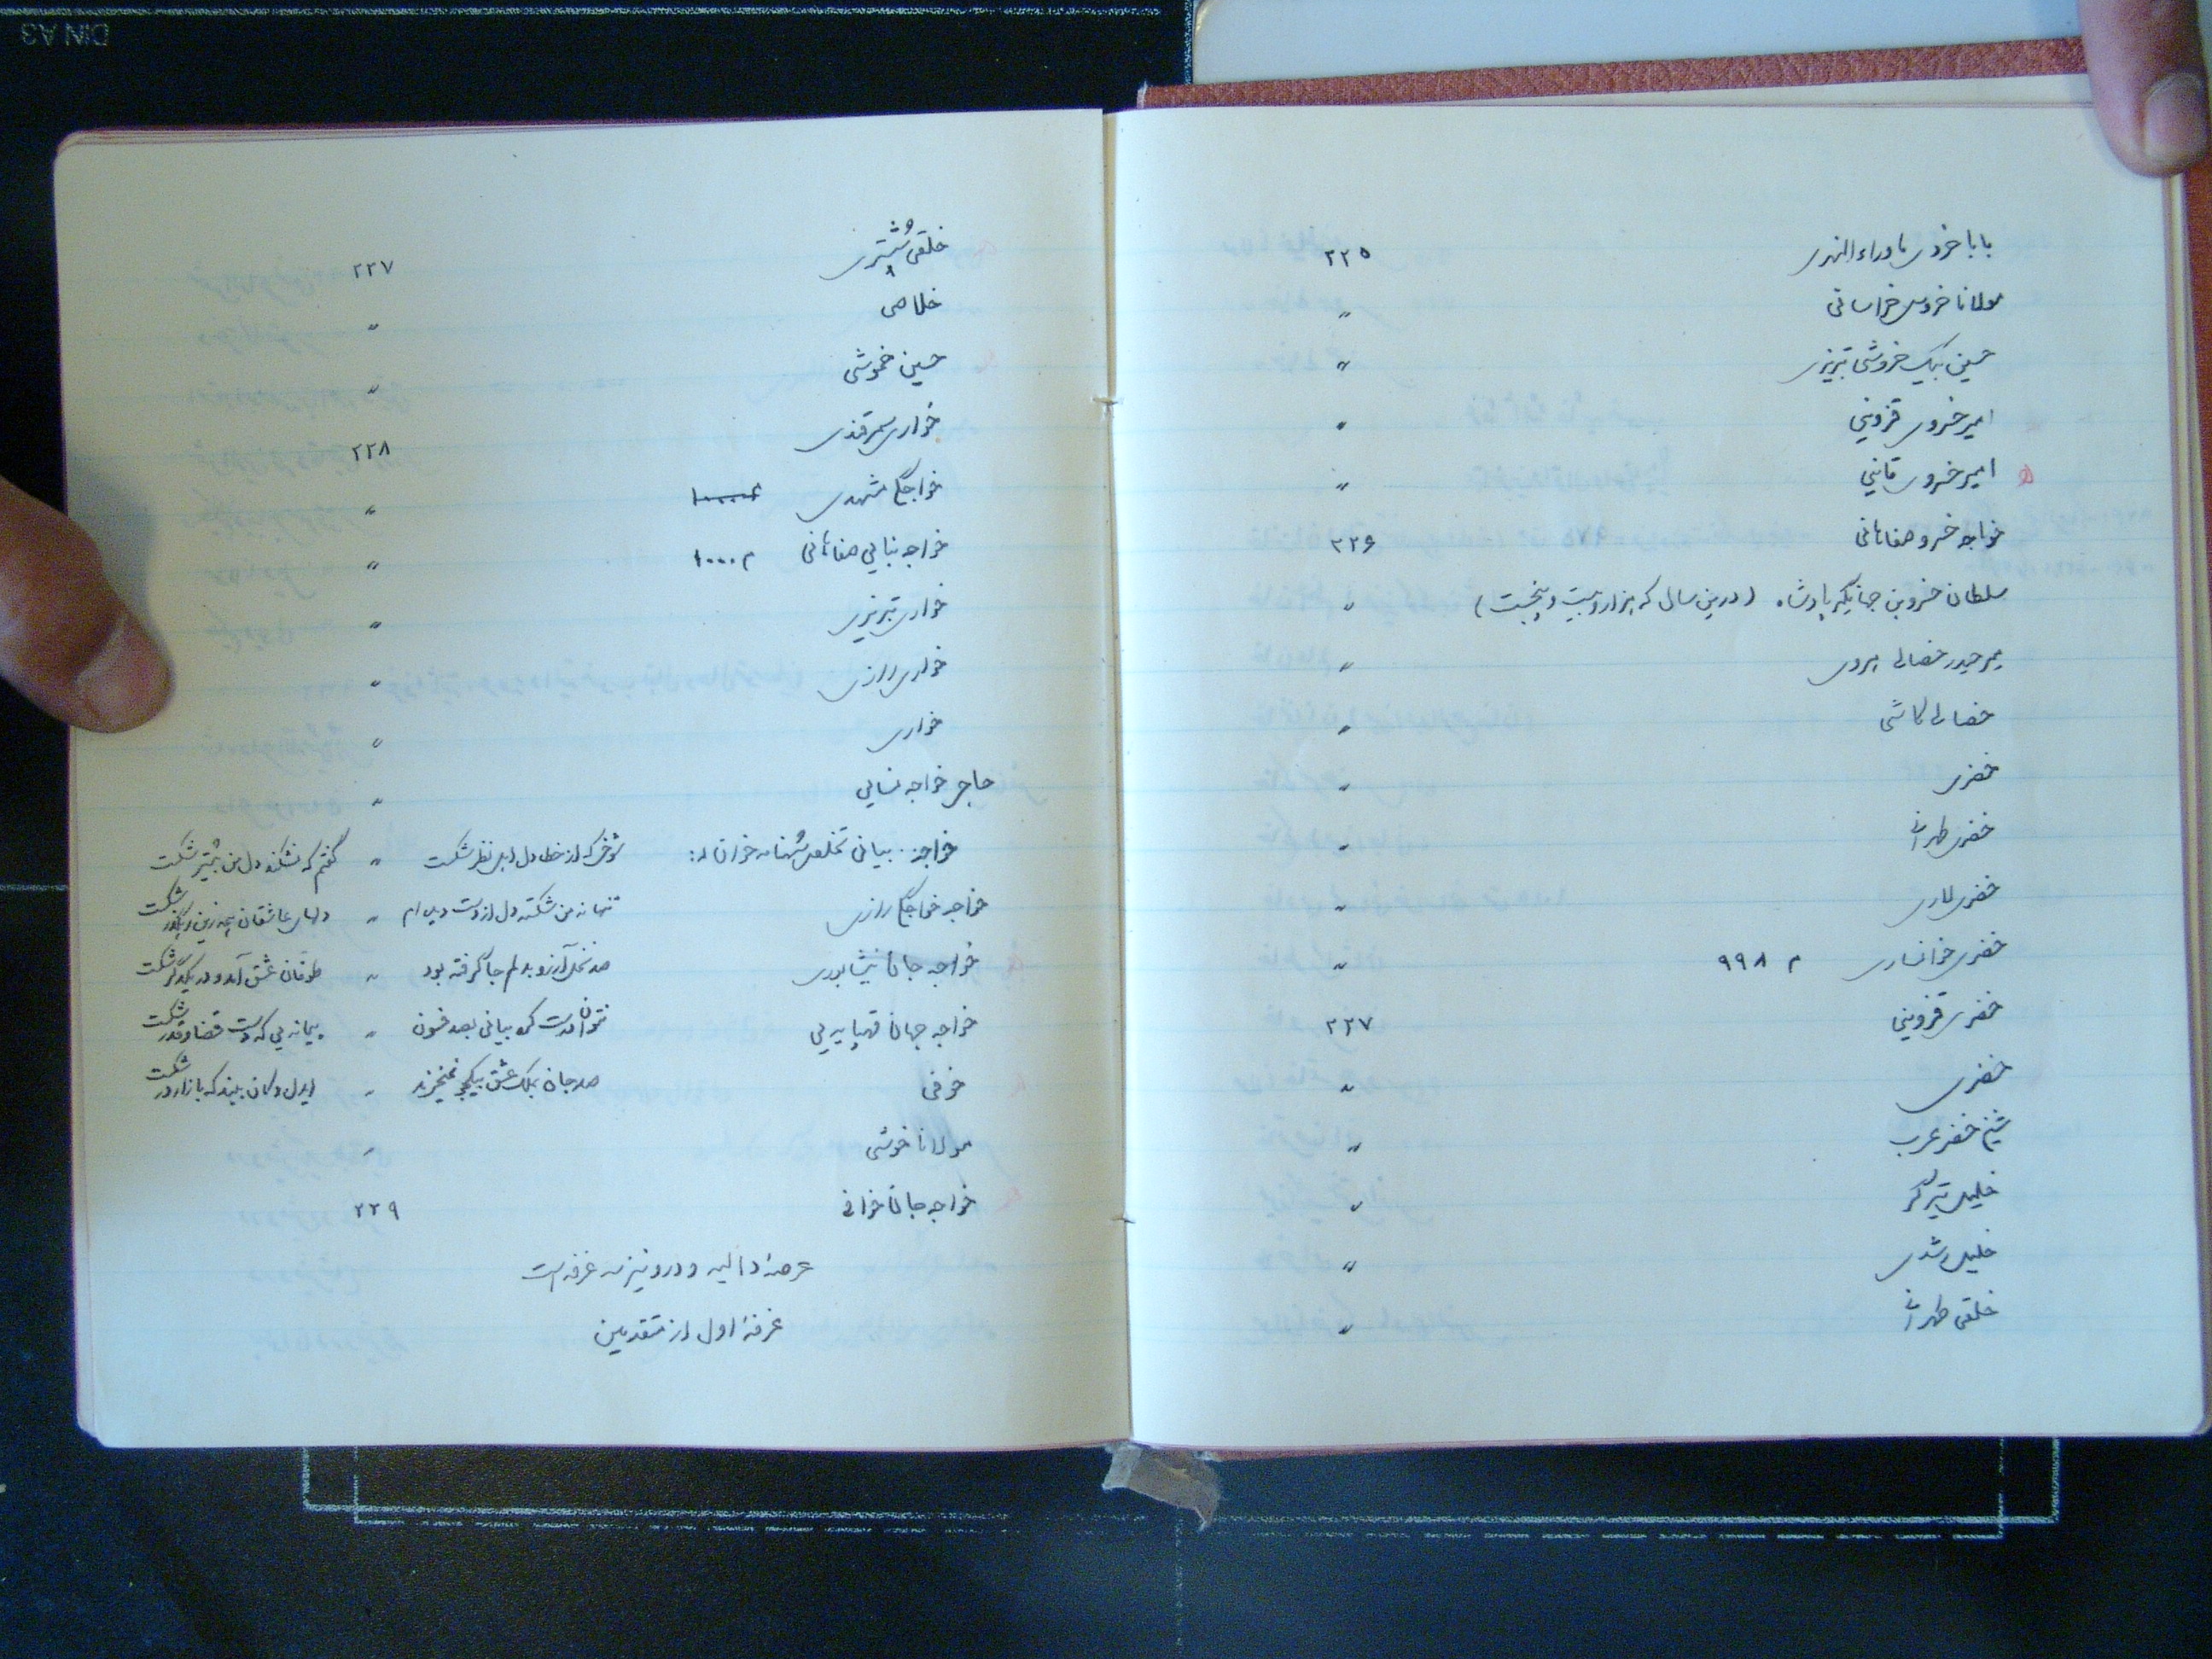 بابا خسروی ماوراءالنهری ۲۲۵
مولانا خسروی خراسانی 〃
حسین بیک خروشی تبریزی 〃
امیر خسروی قزوینی 〃
امیر خسروی قاینی 〃
خواجه خسرو صفاهانی ۲۲۶
سلطان خسرو بن جهانگیر پادشاه (درین سال که هزار و بیست و پنجست) 〃
میر حیدر خصالی هروی 〃
خصالی کاشی 〃
خضری 〃
خضری طهرانی 〃
خضری لاری 〃
خضری خوانساری م ۹۹۸ 〃
خضری قزوینی ۲۲۷
خضری 〃
شیخ خضر عرب 〃
خلیل تیرگر 〃
خلیل رشدی 〃
خلقی طهرانی 〃
خلقی شُشتری ۲۲۷
خلاصی 〃
حسین خموشی 〃
خواری سمرقندی ۲۲۸
خواجگی مشهدی 〃
خواجه بنایی صفاهانی م ۱۰۰۰ 〃
خواری تبریزی 〃
خواری رازی 〃
خواری 〃
حاجی خواجه نسایی 〃
خواجه بیانی تخلص شهنامه خوان له: شوخی که از خطا دل اهل نظر شکست 〃 گفتم که نشکند دل من بیشتر شکست
خواجه خواجگی رازی تنها نه من شکسته دل از دست دیده‌ام 〃 دلهای عاشقان همه زین رهگذر شکست
خواجه جان نیشابوری صد نخل آرزو بدلم جا گرفته بود 〃 طوفان عشق آمد و در یکدگر شکست
خواجه جهان قهپایه‌یی نتوان درست کرد بیانی بصد فسون 〃 پیمانه‌یی که دست قضا و قدر شکست
خوفی صد جان بملک عشق بیکجو نمیخرند 〃 ایدل دکان ببند که بازار در شکست
مولانا خوشی 〃
خواجه جان خوافی ۲۲۹
عرصهٔ دالیه و درو نیز سه غرفه است
غرفهٔ اول از متقدمین
DIN A3